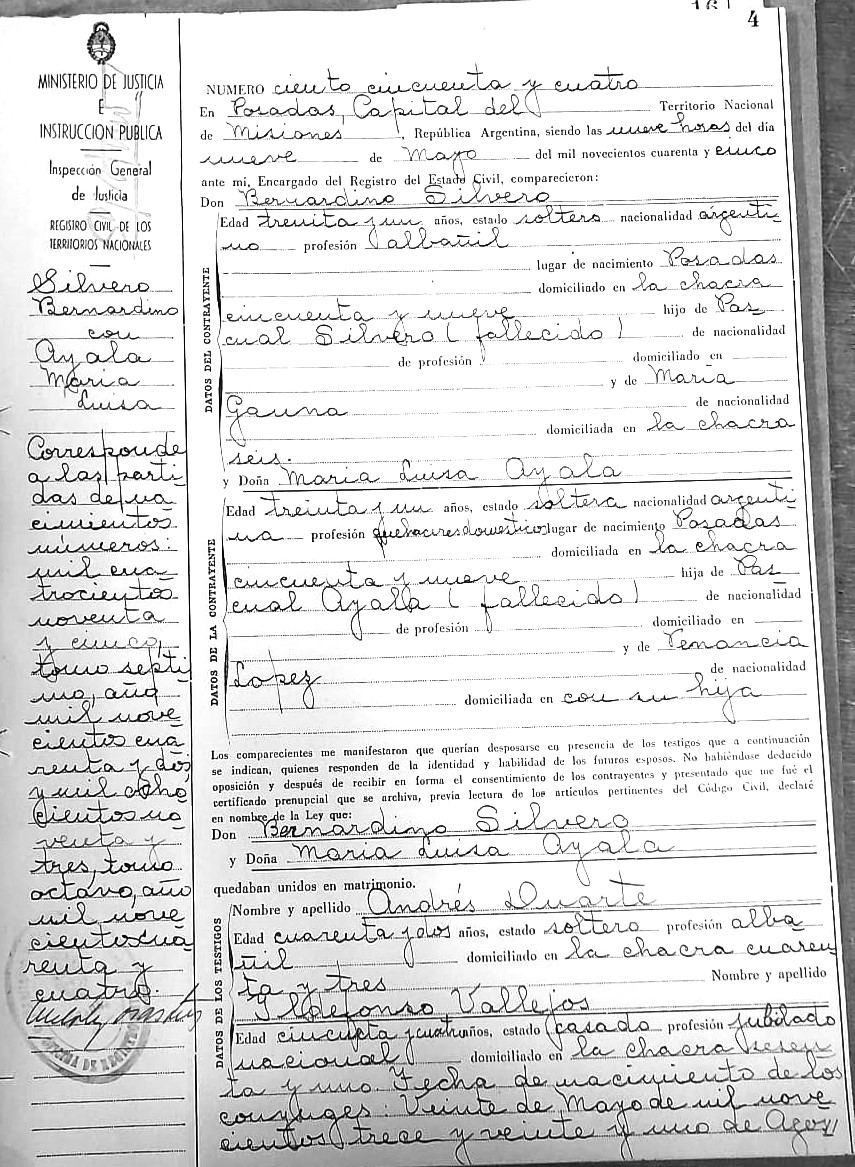 4
MINISTERIO DE JUSTICIA
E
INSTRUCCION PUBLICA
Inspección General
de Justicia
REGISTRO CIVIL DE LOS
TERRITORIOS NACIONALES
Silvero
Bernardino
con
Ayala
Maria
Luisa
Corresponde
a las parti
das de na
cimientos
números:
mil cua
trocientos
noventa
y cinco,
tomo septi
mo, año
mil nove
cientos cua
renta y dos
y mil ocho
cientos no
venta y
tres, tomo
octavo, año
mil nove
cientos cua
renta y
cuatro.
NUMERO ciento cincuenta y cuatro
En Posadas, Capital del Territorio Nacional
de Misiones, República Argentina, siendo las nueve horas del día
nueve de Mayo del mil novecientos cuarenta y cinco
ante mi, Encargado del Registro del Estado Civil, comparecieron:
Don Bernardino Silvero
DATOS DEL CONTRAYENTE
Edad treinta y un años, estado soltero nacionalidad argenti-
no profesión albañil
lugar de nacimiento Posadas
domiciliado en la chacra
cincuenta y nueve hijo de Pas
cual Silvero (fallecido) de nacionalidad
de profesión domiciliado en
y de María
Gauna de nacionalidad
domiciliada en la chacra
seis.
y Doña Maria Luisa Ayala
DATOS DE LA CONTRAYENTE
Edad treinta y un años, estado soltera nacionalidad argenti
na profesión quehaceres domesticos lugar de nacimiento Posadas
domiciliada en la chacra
cincuenta y nueve hija de Pas
cual Ayala (fallecido) de nacionalidad
de profesión domiciliado en
y de Venancia
Lopez de nacionalidad
domiciliada en con su hija
Los comparecientes me manifestaron que querían desposarse en presencia de los testigos que a continuación
se indican, quienes responden de la identidad y habilidad de los futuros esposos. No habiéndose deducido
oposición y después de recibir en forma el consentimiento de los contrayentes y presentado que me fué el
certificado prenupcial que se archiva, previa lectura de los artículos pertinentes del Código Civil, declaré
en nombre de la Ley que:
Don Bernardino Silvero
y Doña Maria Luisa Ayala
quedaban unidos en matrimonio.
DATOS DE LOS TESTIGOS
Nombre y apellido Andrés Duarte
Edad cuarenta y dos años, estado soltero profesión alba
ñil domiciliado en la chacra cuaren
ta y tres Nombre y apellido
Ildefonso Vallejos
Edad años, estado casado profesión jubilado
nacional domiciliado en la chacra sesen
ta y uno Fecha de nacimiento de los
conyuges: Veinte de Mayo de mil nove
cientos trece y veinte y uno de Agos